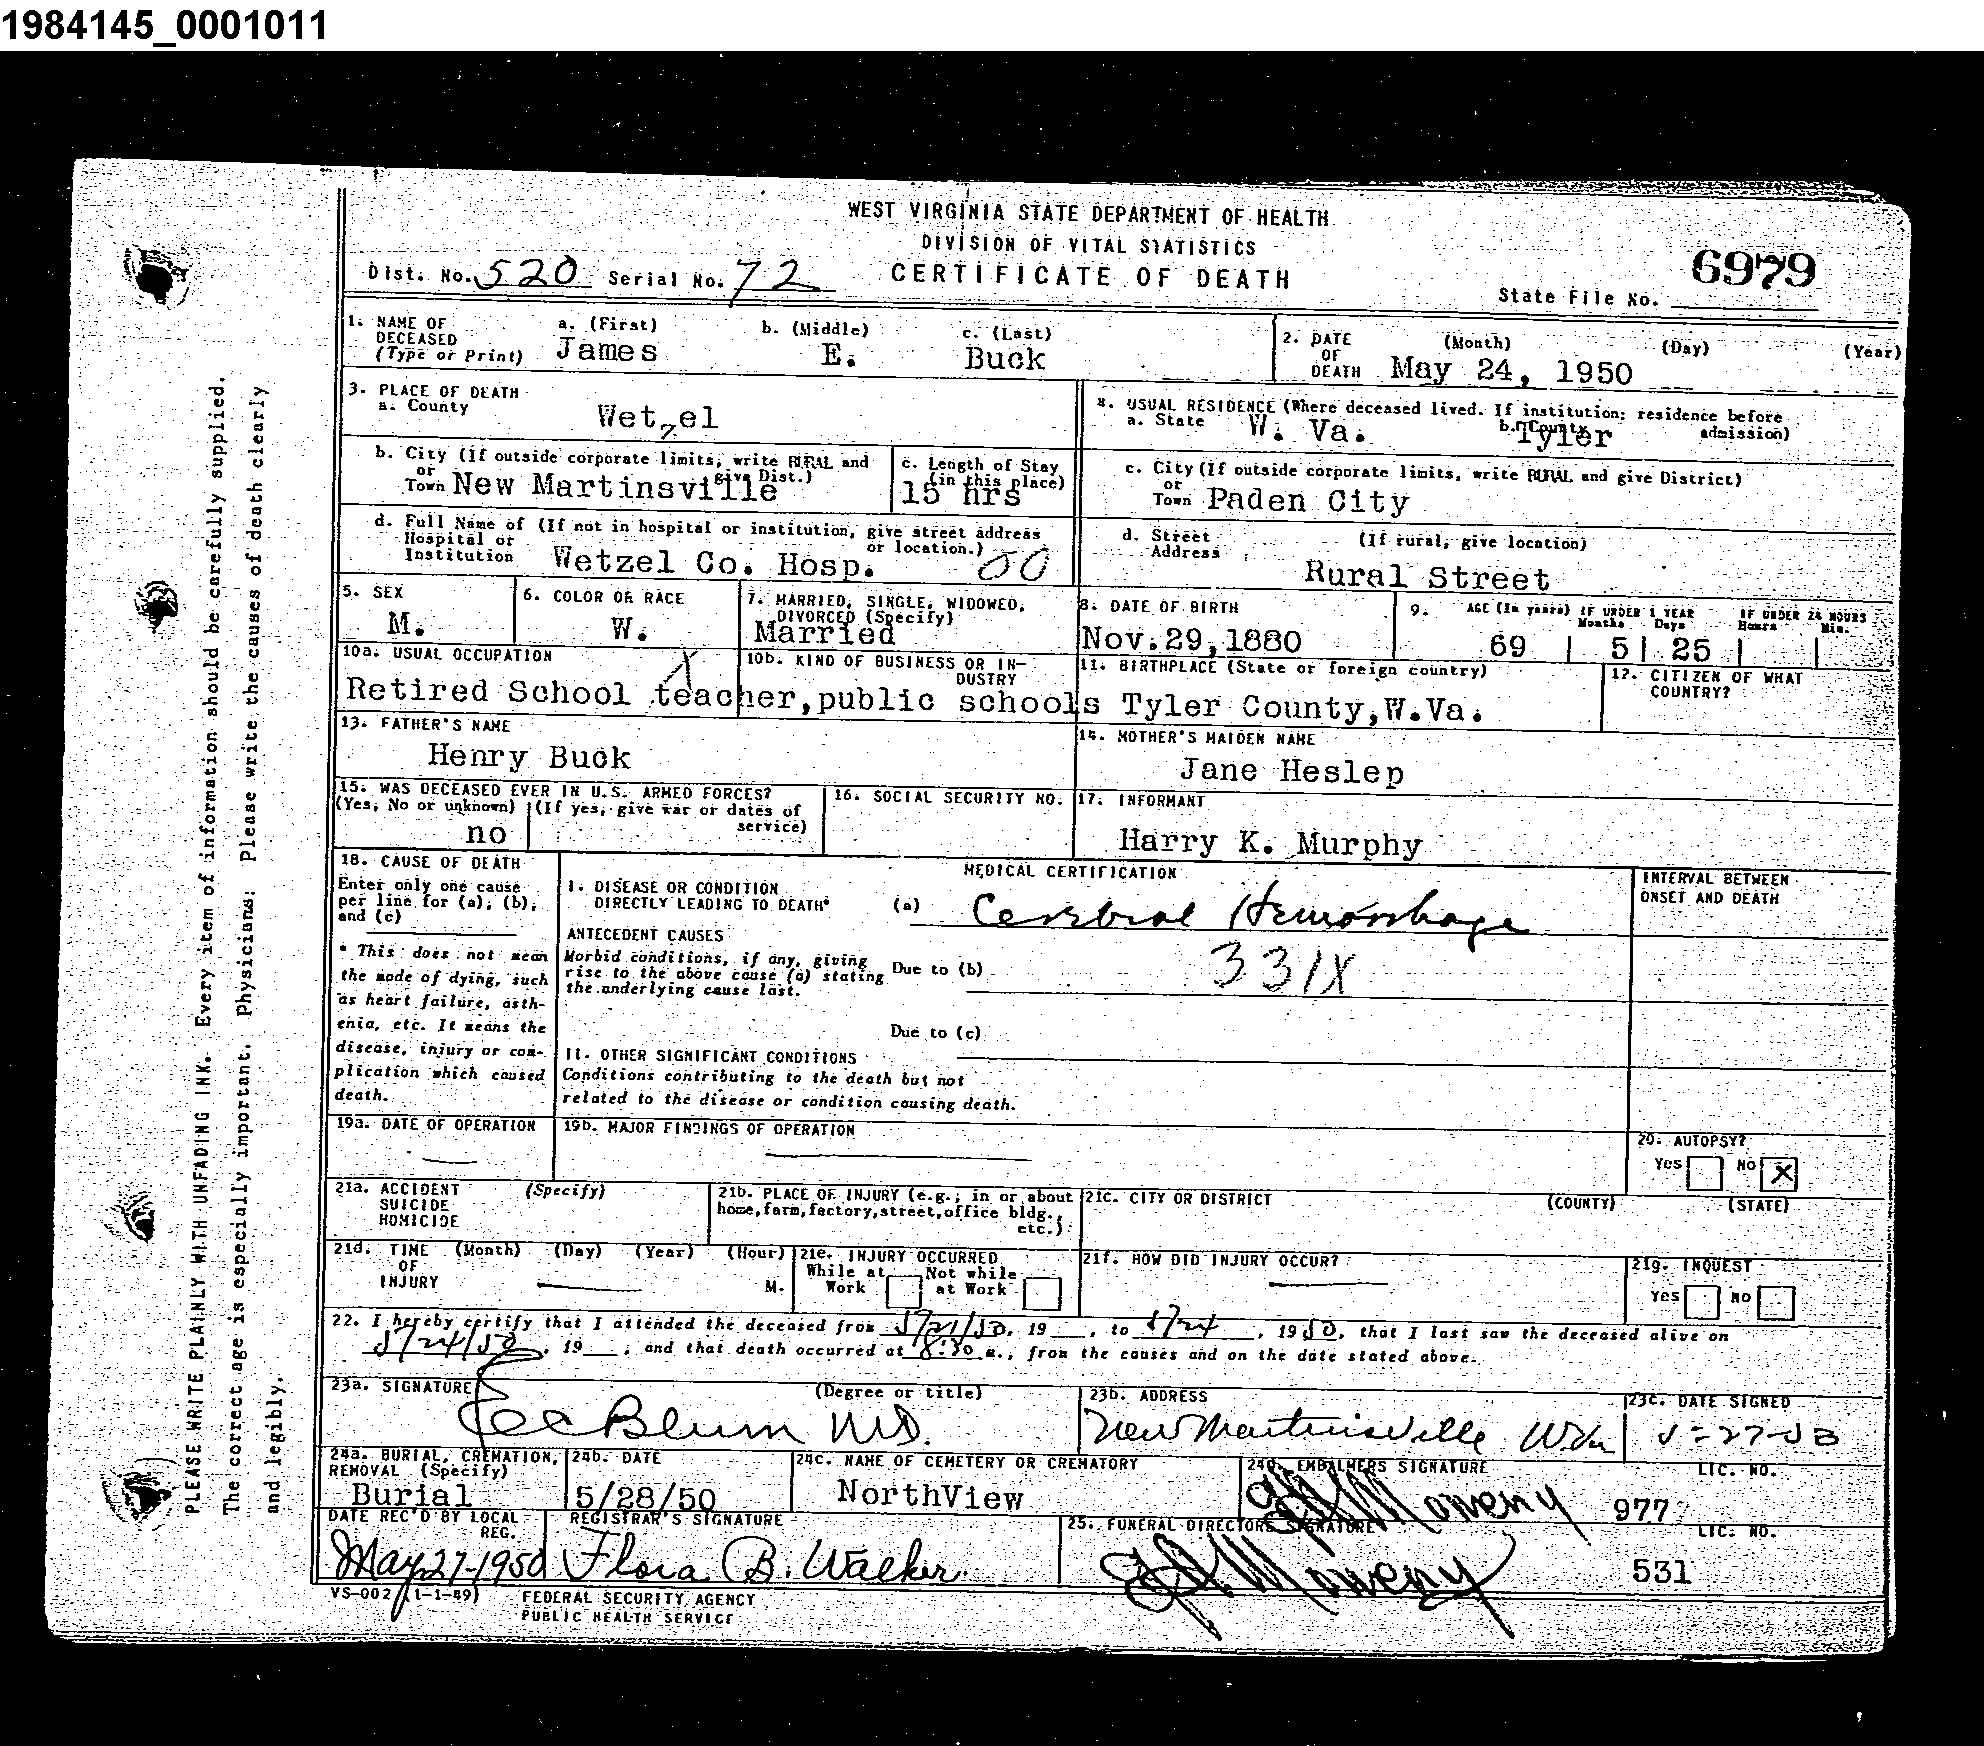 1984145_0001011
WEST VIRGINIA STATE DEPARTMENT OF HEALTH
DIVISION OF VITAL STATISTICS
CERTIFICATE OF DEATH
Dist. No. 520 Serial No. 72
State File No. 6979
1. NAME OF DECEASED (Type or Print) a. (First) James b. (Middle) E. c. (Last) Buck
2. DATE OF DEATH (Month) (Day) (Year) May 24, 1950
3. PLACE OF DEATH
a. County Wetzel
4. USUAL RESIDENCE (Where deceased lived. If institution: residence before admission)
a. State W. Va. b. County Tyler
b. City (if outside corporate limits, write RURAL and give Dist.) or Town New Martinsville
c. Length of Stay (in this place) 15 hrs
c. City (If outside corporate limits, write RURAL and give District) or Town Paden City
d. Full Name of (If not in hospital or institution, give street address or location.) Hospital or Institution Wetzel Co. Hosp. 00
d. Street Address (If rural, give location) Rural Street
5. SEX M.
6. COLOR OR RACE W.
7. MARRIED, SINGLE, WIDOWED, DIVORCED (Specify) Married
8. DATE OF BIRTH Nov.29,1880
9. AGE (In years) 69 IF UNDER 1 YEAR Months 5 Days 25 IF UNDER 24 HOURS Hours Min.
10a. USUAL OCCUPATION 10b. KIND OF BUSINESS OR INDUSTRY
Retired School teacher,public schools
X
11. BIRTHPLACE (State or foreign country) Tyler County,W.Va.
12. CITIZEN OF WHAT COUNTRY?
13. FATHER'S NAME Henry Buck
14. MOTHER'S MAIDEN NAME Jane Heslep
15. WAS DECEASED EVER IN U.S. ARMED FORCES? (Yes, No or unknown) no (If yes, give war or dates of service)
16. SOCIAL SECURITY NO.
17. INFORMANT Harry K. Murphy
18. CAUSE OF DEATH
Enter only one cause per line for (a), (b), and (c)
* This does not mean the mode of dying, such as heart failure, asthenia, etc. It means the disease, injury or complication which caused death.
MEDICAL CERTIFICATION
INTERVAL BETWEEN ONSET AND DEATH
I. DISEASE OR CONDITION DIRECTLY LEADING TO DEATH* (a) Cerebral Hemorrhage
ANTECEDENT CAUSES
Morbid conditions, if any, giving rise to the above cause (a) stating the underlying cause last.
Due to (b) 331X
Due to (c)
II. OTHER SIGNIFICANT CONDITIONS
Conditions contributing to the death but not related to the disease or condition causing death.
19a. DATE OF OPERATION
19b. MAJOR FINDINGS OF OPERATION
20. AUTOPSY?
Yes No X
21a. ACCIDENT SUICIDE HOMICIDE (Specify)
21b. PLACE OF INJURY (e.g., in or about home, farm, factory, street, office bldg., etc.)
21c. CITY OR DISTRICT (COUNTY) (STATE)
21d. TIME OF INJURY (Month) (Day) (Year) (Hour) M.
21e. INJURY OCCURRED While at Work Not while at Work
21f. HOW DID INJURY OCCUR?
21g. INQUEST Yes No
22. I hereby certify that I attended the deceased from 5/21/50, 19__, to 5/24, 1950, that I last saw the deceased alive on
5/24/50, 19__, and that death occurred at m., from the causes and on the date stated above.
23a. SIGNATURE (Degree or title) Blum MD.
23b. ADDRESS New Martinsville WVa
23c. DATE SIGNED 5-27-50
24a. BURIAL, CREMATION, REMOVAL (Specify) Burial
24b. DATE 5/28/50
24c. NAME OF CEMETERY OR CREMATORY NorthView
24d. EMBALMERS SIGNATURE LIC. NO. 977
DATE REC'D BY LOCAL REG. May 27-1950
REGISTRAR'S SIGNATURE Flora B. Walker
25. FUNERAL DIRECTORS SIGNATURE LIC. NO. 531
VS-002 (1-1-49) FEDERAL SECURITY AGENCY
PUBLIC HEALTH SERVICE
PLEASE WRITE PLAINLY WITH UNFADING INK. Every item of information should be carefully supplied.
The correct age is especially important. Physicians: Please write the causes of death clearly
and legibly.